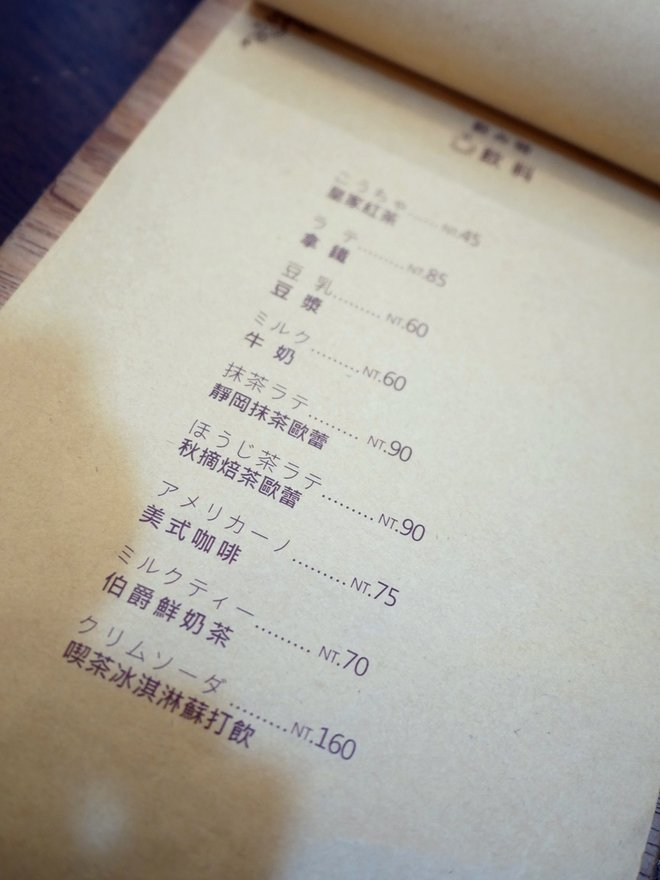 飲料
こうちゃ......NT.45
皇家紅茶
ラテ..........NT.85
拿鐵
豆乳..........NT.60
豆漿
ミルク.........NT.60
牛奶
抹茶ラテ..........NT.90
靜岡抹茶歐蕾
ほうじ茶ラテ..........NT.90
秋摘焙茶歐蕾
アメリカーノ..........NT.75
美式咖啡
ミルクティー..........NT.70
伯爵鮮奶茶
クリムソーダ..........NT.160
喫茶冰淇淋蘇打飲